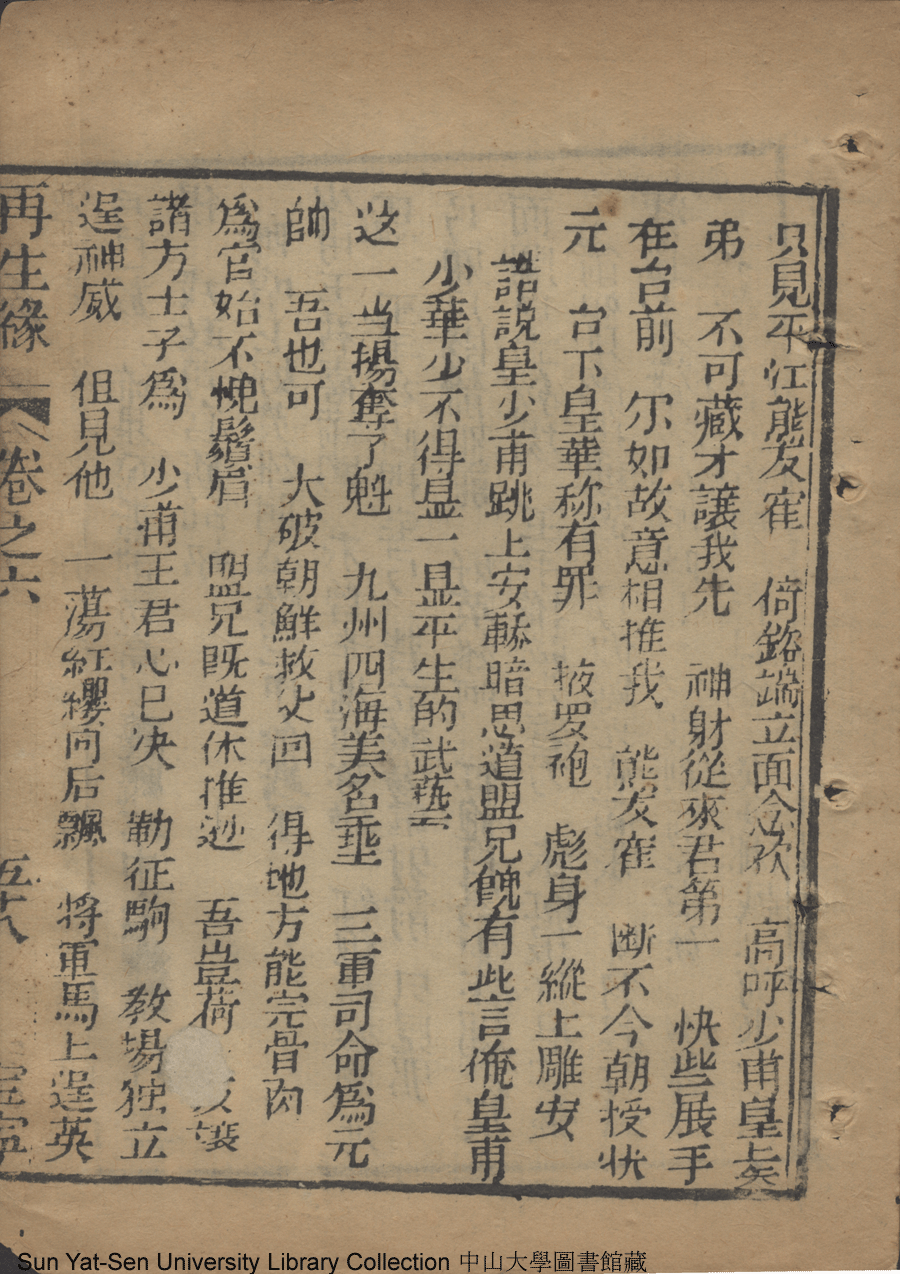 只見平江熊友寉 倚鉻端立面含欢 高呼少甫皇上矣
弟 不可藏才讓我先 神財從來君第一 快些展手
在台前 尔如故意相推我 熊友寉 断不今朝授状
元 台下皇華称有罪 掖罗袍 彪身一縱上雕安
話説皇少甫跳上安鞽暗思道盟兄餽有些言俺皇甫
少華少不得显一显平生的武藝
这一当揚奪了魁 九州四海美名垂 三軍司命爲元
帥 吾也可 大破朝鮮救父回 得地方能完骨肉
爲官始不愧鬚眉 盟兄既道休推遜 吾豈荷 反嚷
諸方士子爲 少甫王君心巳决 勒征駒 教場独立
逞神威 但見他 一蕩紅纓向后飄 將軍馬上逞英
再生緣 卷之六 五十八 宝寧